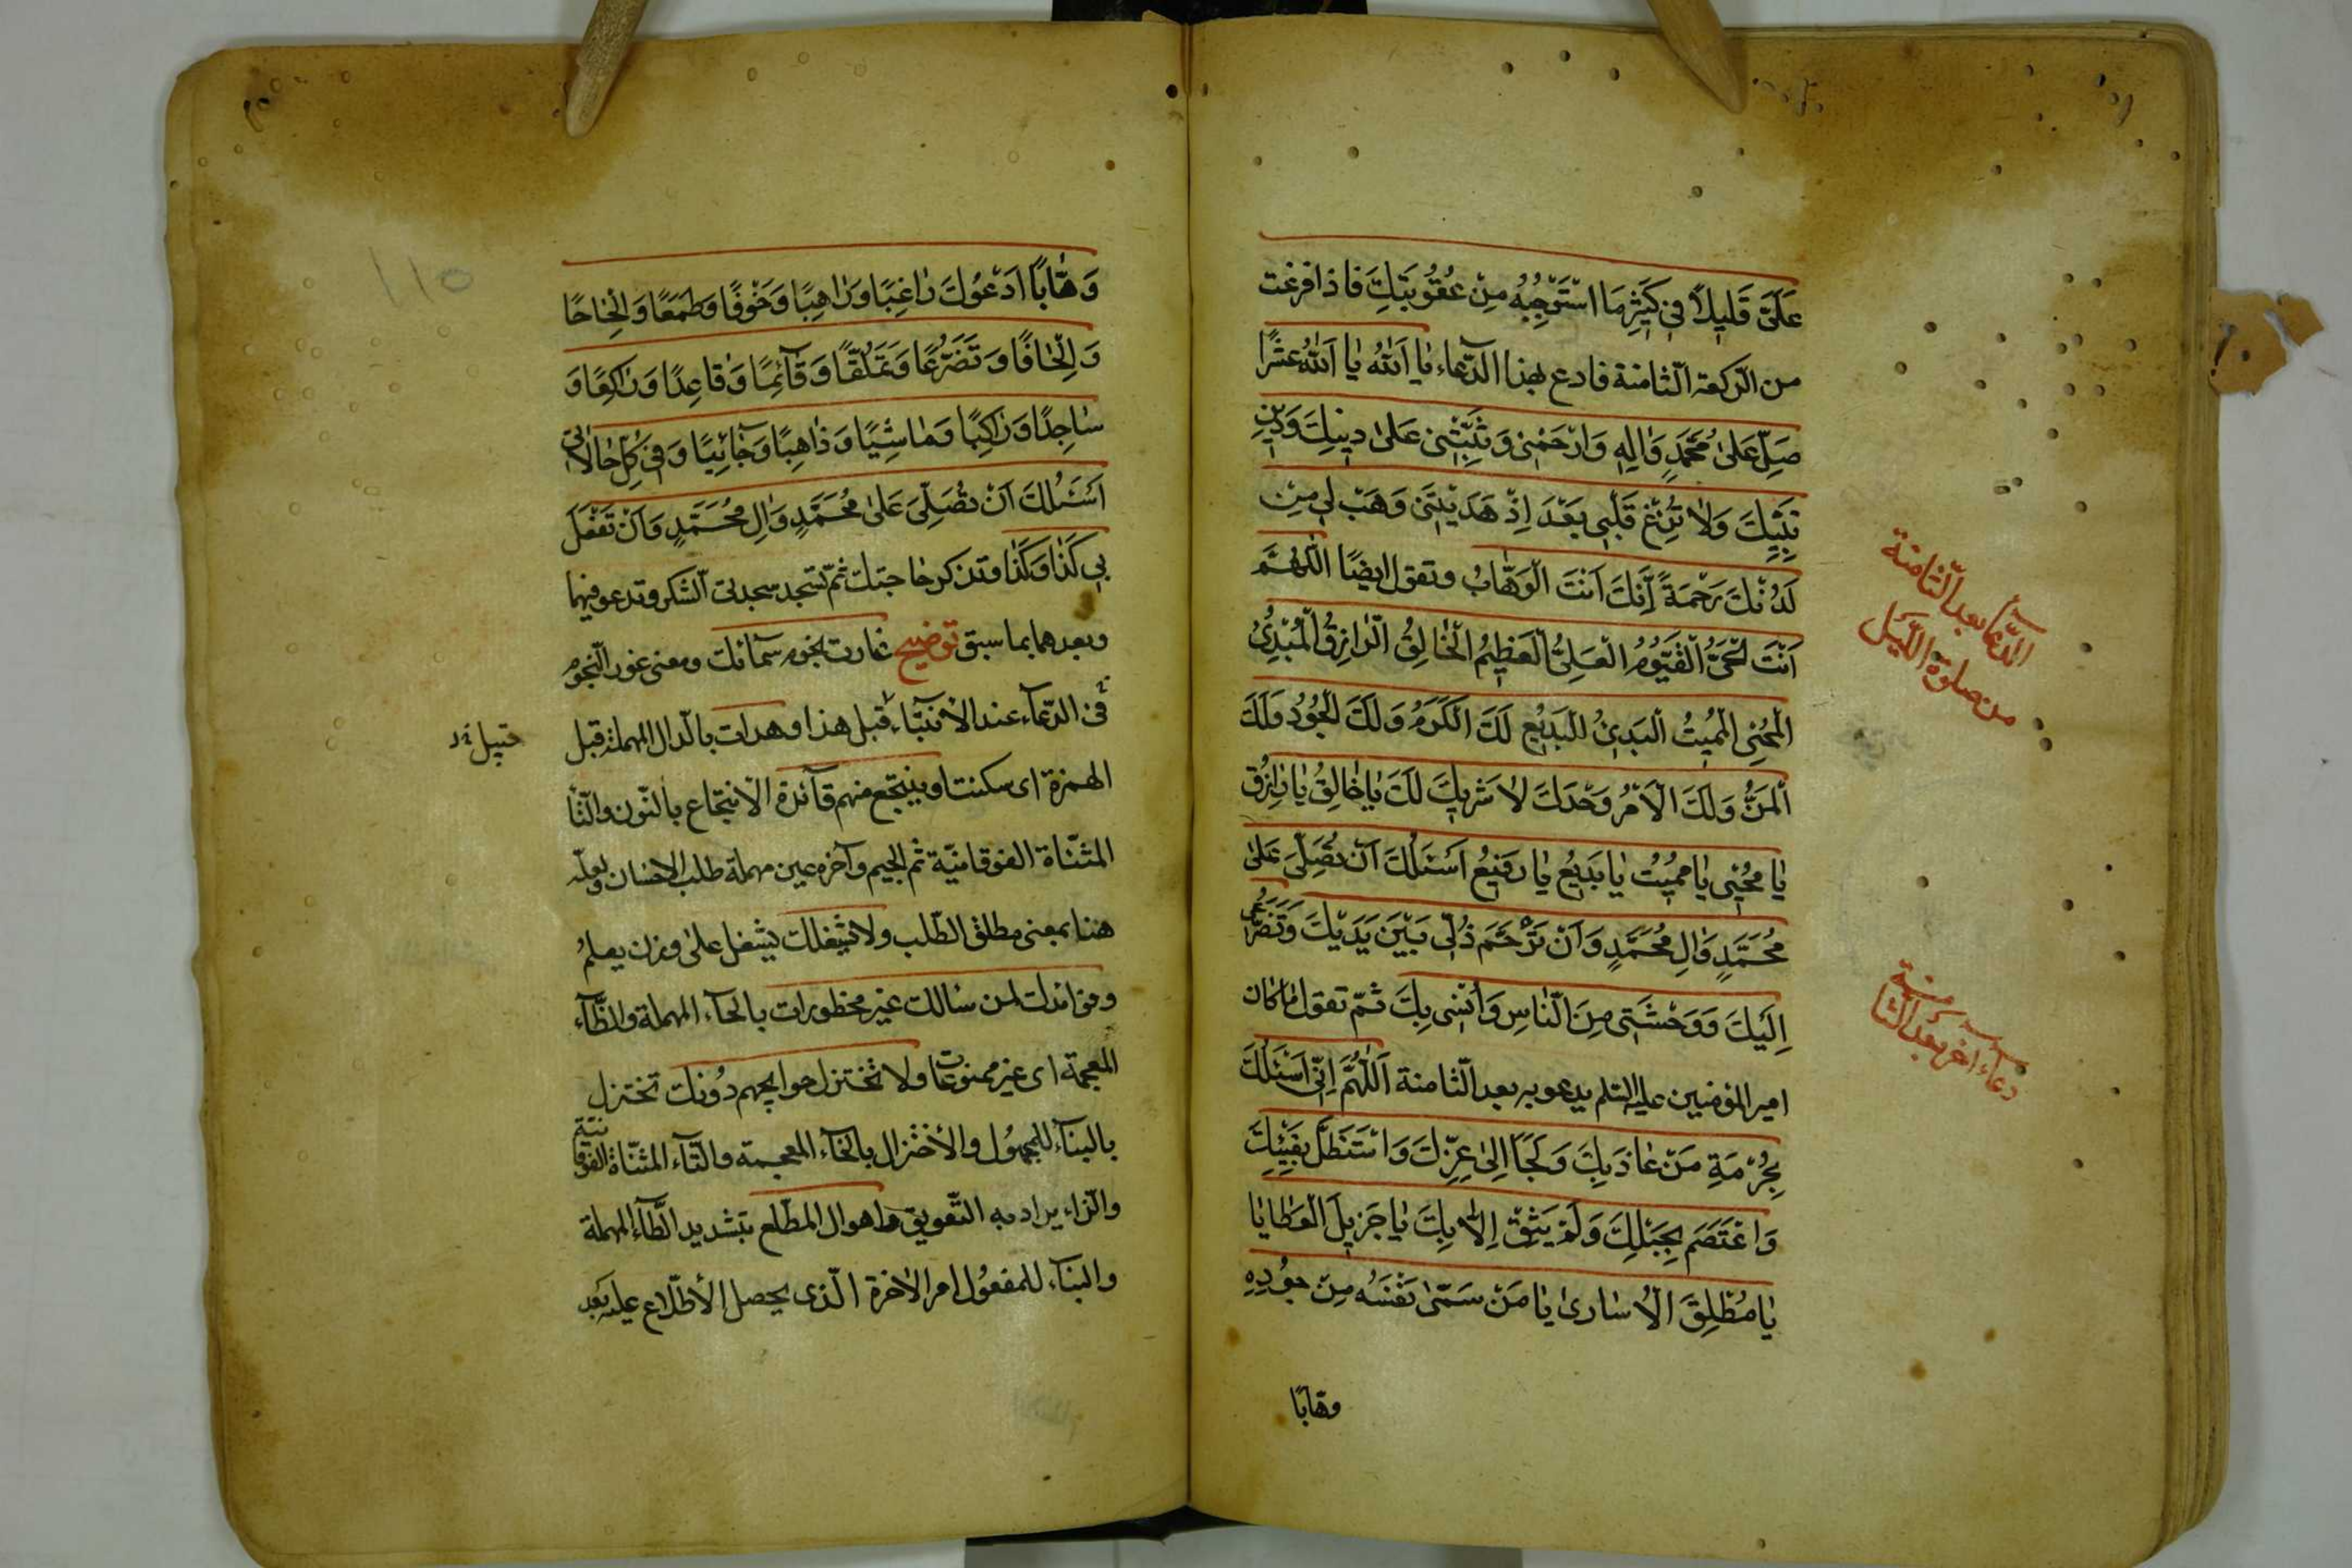 عَلَيَّ قَلِيلًا فِي كَثِيرِ مَا اَسْتَوْجِبُهُ مِنْ عُقُوبَتِكَ فاذا فرغت
من الرّكعة الثّامنة فادع بهذا الدّعاء يٰا اَللّٰهُ يٰا اَللّٰهُ عشرًا
صَلِّ عَلىٰ مُحَمَّدٍ وَاٰلِهِ وَارْحَمْنِي وَثَبِّتْنِي عَلىٰ دِينِكَ وَدِينِ
نَبِيِّكَ وَلاٰ تُزِغْ قَلْبِي بَعْدَ اِذْ هَدَيْتَنِي وَهَبْ لِي مِنْ
لَدُنْكَ رَحْمَةً اِنَّكَ اَنْتَ الْوَهّٰابُ وتقول ايضًا اَللّٰهُمَّ
اَنْتَ الْحَيُّ الْقَيُّومُ الْعَلِيُّ الْعَظِيمُ الْخٰالِقُ الرّٰازِقُ الْمُبْدِئُ
الْمُحْيِي الْمُمِيتُ الْبَدِيءُ الْبَدِيعُ لَكَ الْكَرَمُ وَلَكَ الْجُودُ وَلَكَ
الْمَنُّ وَلَكَ الْاَمْرُ وَحْدَكَ لاٰ شَرِيكَ لَكَ يٰا خٰالِقُ يٰا رٰازِقُ
يٰا مُحْيِي يٰا مُمِيتُ يٰا بَدِيعُ يٰا رَفِيعُ اَسْئَلُكَ اَنْ تُصَلِّيَ عَلىٰ
مُحَمَّدٍ وَاٰلِ مُحَمَّدٍ وَاَنْ تَرْحَمَ ذُلِّي بَيْنَ يَدَيْكَ وَتَضَرُّعِي
اِلَيْكَ وَوَحْشَتِي مِنَ النّٰاسِ وَاُنْسِي بِكَ ثمّ تقول ما كان
امير المؤمنين عليه السّلم يدعو به بعد الثّامنة اَللّٰهُمَّ اِنِّي اَسْئَلُكَ
بِحُرْمَةِ مَنْ عٰاذَ بِكَ وَلَجَاَ اِلىٰ عِزِّكَ وَاسْتَظَلَّ بِفَيْئِكَ
وَاعْتَصَمَ بِحَبْلِكَ وَلَمْ يَثِقْ اِلّاٰ بِكَ يٰا جَزِيلَ الْعَطٰايٰا
يٰا مُطْلِقَ الْاُسٰارىٰ يٰا مَنْ سَمّىٰ نَفْسَهُ مِنْ جُودِهِ
وهّابًا
الدّعاء بعد الثّامنة
من صلوة اللّيل
دعاء آخر بعد الثّامنة
١١٥
وَهّٰاباً اَدْعُوكَ رٰاغِبًا وَرٰاهِبًا وَخَوْفًا وَطَمَعًا وَاِلْحٰاحًا
وَاِلْحٰافًا وَتَضَرُّعًا وَتَمَلُّقًا وَقٰآئِمًا وَقٰاعِدًا وَرٰاكِعًا وَ
سٰاجِدًا وَرٰاكِبًا وَمٰاشِيًا وَذٰاهِبًا وَجٰائِيًا وَفِي كُلِّ حٰالاٰتِي
اَسْئَلُكَ اَنْ تُصَلِّيَ عَلىٰ مُحَمَّدٍ وَاٰلِ مُحَمَّدٍ وَاَنْ تَفْعَلَ
بِي كَذٰا وَكَذٰا وتذكر حاجتك ثمّ تسجد سجدتى الشّكر وتدعو فيهما
وبعدهما بما سبق توضيح غارت نجوم سمائك ومعنى غور النّجوم
فى الدّعآء عند الأنتباه قبل هذا وهدات بالدّال المهملة قبل
الهمزة اى سكنت او ينتجع منهم فآئدة الانتجاع بالنّون والتّآ
المثنّاة الفوقانيّة ثم الجيم وآخره عين مهملة طلب الاحسان ولعلّه
هنا بمعنى مطلق الطّلب ولا يشغلك يشغل على وزن يعلم
وفوائدك لمن سالك غير محظورات بالحآء المهملة والظّآء
المعجمة اى غير ممنوعات ولا تختزل حوايجهم دونك تختزل
بالبنآء للمجهول والأختزال بالخآء المعجمة والتّآء المثنّاة الفوقانيّة
والزّاء يراد به التّعويق واهوال المطّلع بتشديد الطّآء المهملة
والبنآء للمفعول امر الآخرة الّذى يحصل الأطّلاع عليه بعد